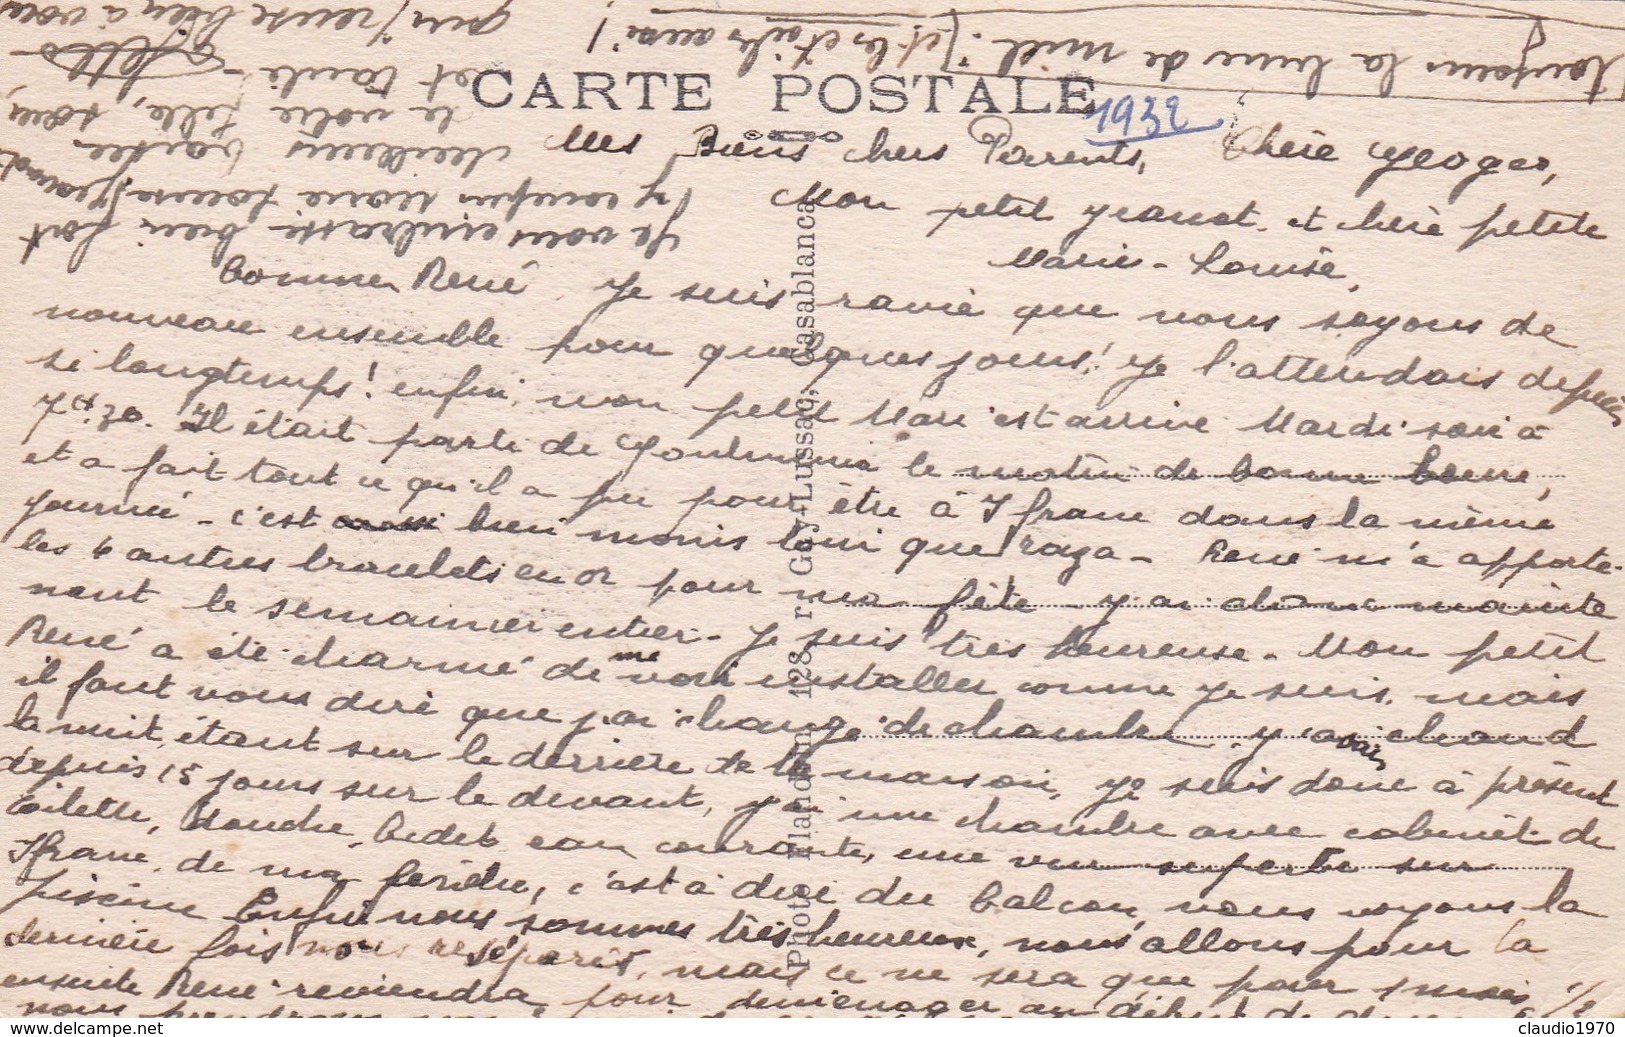 CARTE POSTALE
1932
Mes Biens chers Parents, Chère Georges,
Mon petit Jeannot et chère petite
Marie-Louise,
Comme René, Je suis ravie que nous soyons de
nouveau ensemble pour quelques jours! Je l'attendais depuis
si longtemps! enfin, mon petit Mari est arrivé Mardi soir à
7h30. Il était parti de le matin de bonne heure,
et a fait tout ce qu'il a pu pour être à Ifrane dans la même
journée - c'est bien moins loin que Taza - René m'a apporté
les 6 autres bracelets en or pour ma fête - j'ai donc mainte
nant le semainier entier - Je suis très heureuse - Mon petit
René a été charmé de me voir installée comme je suis, mais
il faut vous dire que j'ai changé de chambre, j'avais chaud
la nuit, étant sur le derrière de la maison, je suis donc à présent
depuis 15 jours sur le devant, j'ai une chambre avec cabinet de
toilette, douche, bidet eau courante, une vue superbe sur
Ifrane, de ma fenêtre, c'est à dire du balcon, nous voyons la
piscine Enfin nous sommes très heureux, nous allons pour la
dernière fois nous séparer, mais ce ne sera que pour 1 mois 1/2
ensuite René reviendra pour déménager au début de
nous prendrons
toujours la lune de miel! (et les étoiles aussi!)
Je vous embrasse bien fort
y compris Marie Louise, Jeannot
Meilleurs baisers
de votre fille, sœur,
et tante -
qui pense bien à vous
Photo Flandrin, 128, r Gay-Lussac, Casablanca
claudio1970